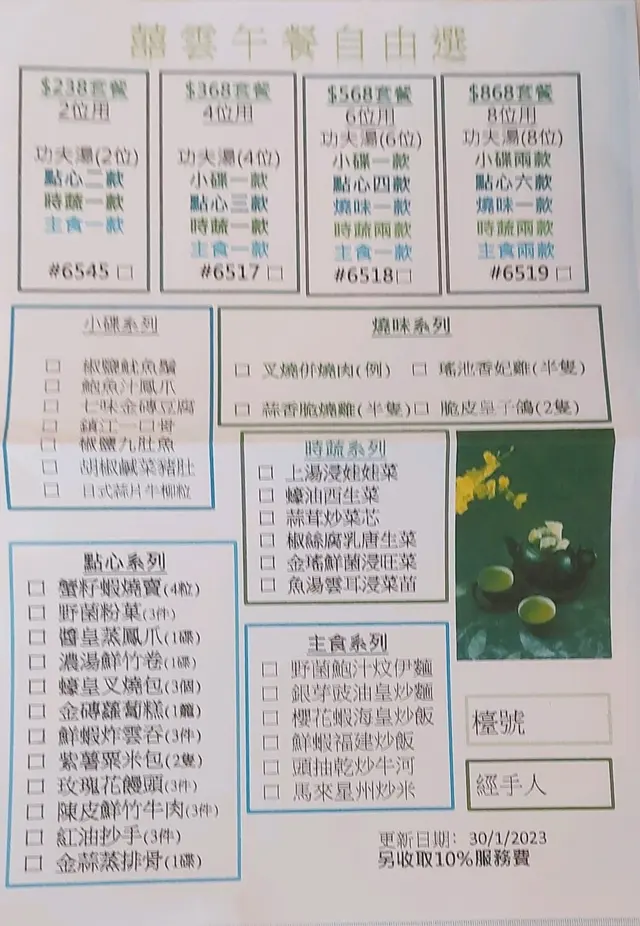 囍雲午餐自由選
$238套餐
2位用
功夫湯(2位)
點心二款
時蔬一款
主食一款
#6545 □
$368套餐
4位用
功夫湯(4位)
小碟一款
點心三款
時蔬一款
主食一款
#6517 □
$568套餐
6位用
功夫湯(6位)
小碟一款
點心四款
燒味一款
時蔬兩款
主食一款
#6518□
$868套餐
8位用
功夫湯(8位)
小碟兩款
點心六款
燒味一款
時蔬兩款
主食兩款
#6519 □
小碟系列
□ 椒鹽魷魚鬚
□ 鮑魚汁鳳爪
□ 七味金磚豆腐
□ 鎮江一口骨
□ 椒鹽九肚魚
□ 胡椒鹹菜豬肚
□ 日式蒜片牛柳粒
燒味系列
□ 叉燒併燒肉(例) □ 瑤池香妃雞(半隻)
□ 蒜香脆燒雞(半隻)□ 脆皮皇子鴿(2隻)
時蔬系列
□ 上湯浸娃娃菜
□ 蠔油西生菜
□ 蒜茸炒菜芯
□ 椒絲腐乳唐生菜
□ 金瑤鮮菌浸旺菜
□ 魚湯雲耳浸菜苗
點心系列
□ 蟹籽蝦燒賣(4粒)
□ 野菌粉菓(3件)
□ 醬皇蒸鳳爪(1碟)
□ 濃湯鮮竹卷(1碟)
□ 蠔皇叉燒包(3個)
□ 金磚蘿蔔糕(1籠)
□ 鮮蝦炸雲吞(3件)
□ 紫薯粟米包(2隻)
□ 玫瑰花饅頭(3件)
□ 陳皮鮮竹牛肉(3件)
□ 紅油抄手(3件)
□ 金蒜蒸排骨(1碟)
主食系列
□ 野菌鮑汁炆伊麵
□ 銀芽豉油皇炒麵
□ 櫻花蝦海皇炒飯
□ 鮮蝦福建炒飯
□ 頭抽乾炒牛河
□ 馬來星州炒米
檯號
經手人
更新日期: 30/1/2023
另收取10%服務費